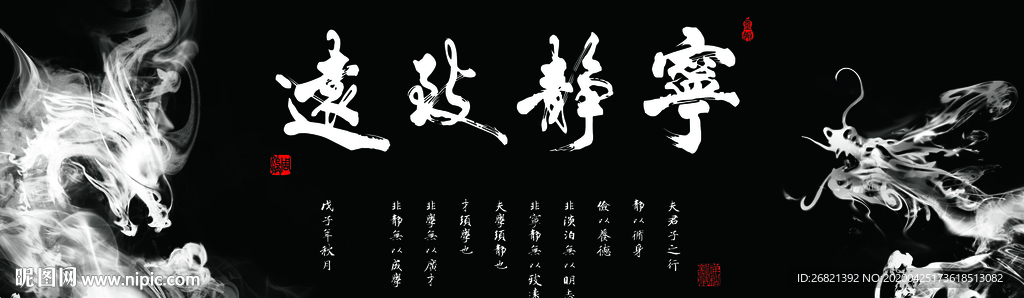 寧靜致遠
夫君子之行
靜以脩身
儉以養德
非淡泊無以明志
非寧靜無以致遠
夫學須靜也
才須學也
非學無以廣才
非靜無以成學
戊子年秋月
昵图网 www.nipic.com
ID:26821392 NO:20200425173618513082